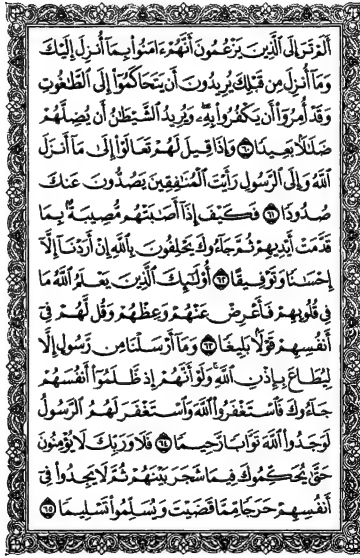 أَلَمْ تَرَ إِلَى ٱلَّذِينَ يَزْعُمُونَ أَنَّهُمْ ءَامَنُوا۟ بِمَآ أُنزِلَ إِلَيْكَ
وَمَآ أُنزِلَ مِن قَبْلِكَ يُرِيدُونَ أَن يَتَحَاكَمُوٓا۟ إِلَى ٱلطَّٰغُوتِ
وَقَدْ أُمِرُوٓا۟ أَن يَكْفُرُوا۟ بِهِۦ وَيُرِيدُ ٱلشَّيْطَٰنُ أَن يُضِلَّهُمْ
ضَلَٰلًۢا بَعِيدًا ٦٠ وَإِذَا قِيلَ لَهُمْ تَعَالَوْا۟ إِلَىٰ مَآ أَنزَلَ
ٱللَّهُ وَإِلَى ٱلرَّسُولِ رَأَيْتَ ٱلْمُنَٰفِقِينَ يَصُدُّونَ عَنكَ
صُدُودًا ٦١ فَكَيْفَ إِذَآ أَصَٰبَتْهُم مُّصِيبَةٌۢ بِمَا
قَدَّمَتْ أَيْدِيهِمْ ثُمَّ جَآءُوكَ يَحْلِفُونَ بِٱللَّهِ إِنْ أَرَدْنَآ إِلَّآ
إِحْسَٰنًا وَتَوْفِيقًا ٦٢ أُو۟لَٰٓئِكَ ٱلَّذِينَ يَعْلَمُ ٱللَّهُ مَا
فِى قُلُوبِهِمْ فَأَعْرِضْ عَنْهُمْ وَعِظْهُمْ وَقُل لَّهُمْ فِىٓ
أَنفُسِهِمْ قَوْلًۢا بَلِيغًا ٦٣ وَمَآ أَرْسَلْنَا مِن رَّسُولٍ إِلَّا
لِيُطَاعَ بِإِذْنِ ٱللَّهِ ۚ وَلَوْ أَنَّهُمْ إِذ ظَّلَمُوٓا۟ أَنفُسَهُمْ
جَآءُوكَ فَٱسْتَغْفَرُوا۟ ٱللَّهَ وَٱسْتَغْفَرَ لَهُمُ ٱلرَّسُولُ
لَوَجَدُوا۟ ٱللَّهَ تَوَّابًا رَّحِيمًا ٦٤ فَلَا وَرَبِّكَ لَا يُؤْمِنُونَ
حَتَّىٰ يُحَكِّمُوكَ فِيمَا شَجَرَ بَيْنَهُمْ ثُمَّ لَا يَجِدُوا۟ فِىٓ
أَنفُسِهِمْ حَرَجًا مِّمَّا قَضَيْتَ وَيُسَلِّمُوا۟ تَسْلِيمًا ٦٥